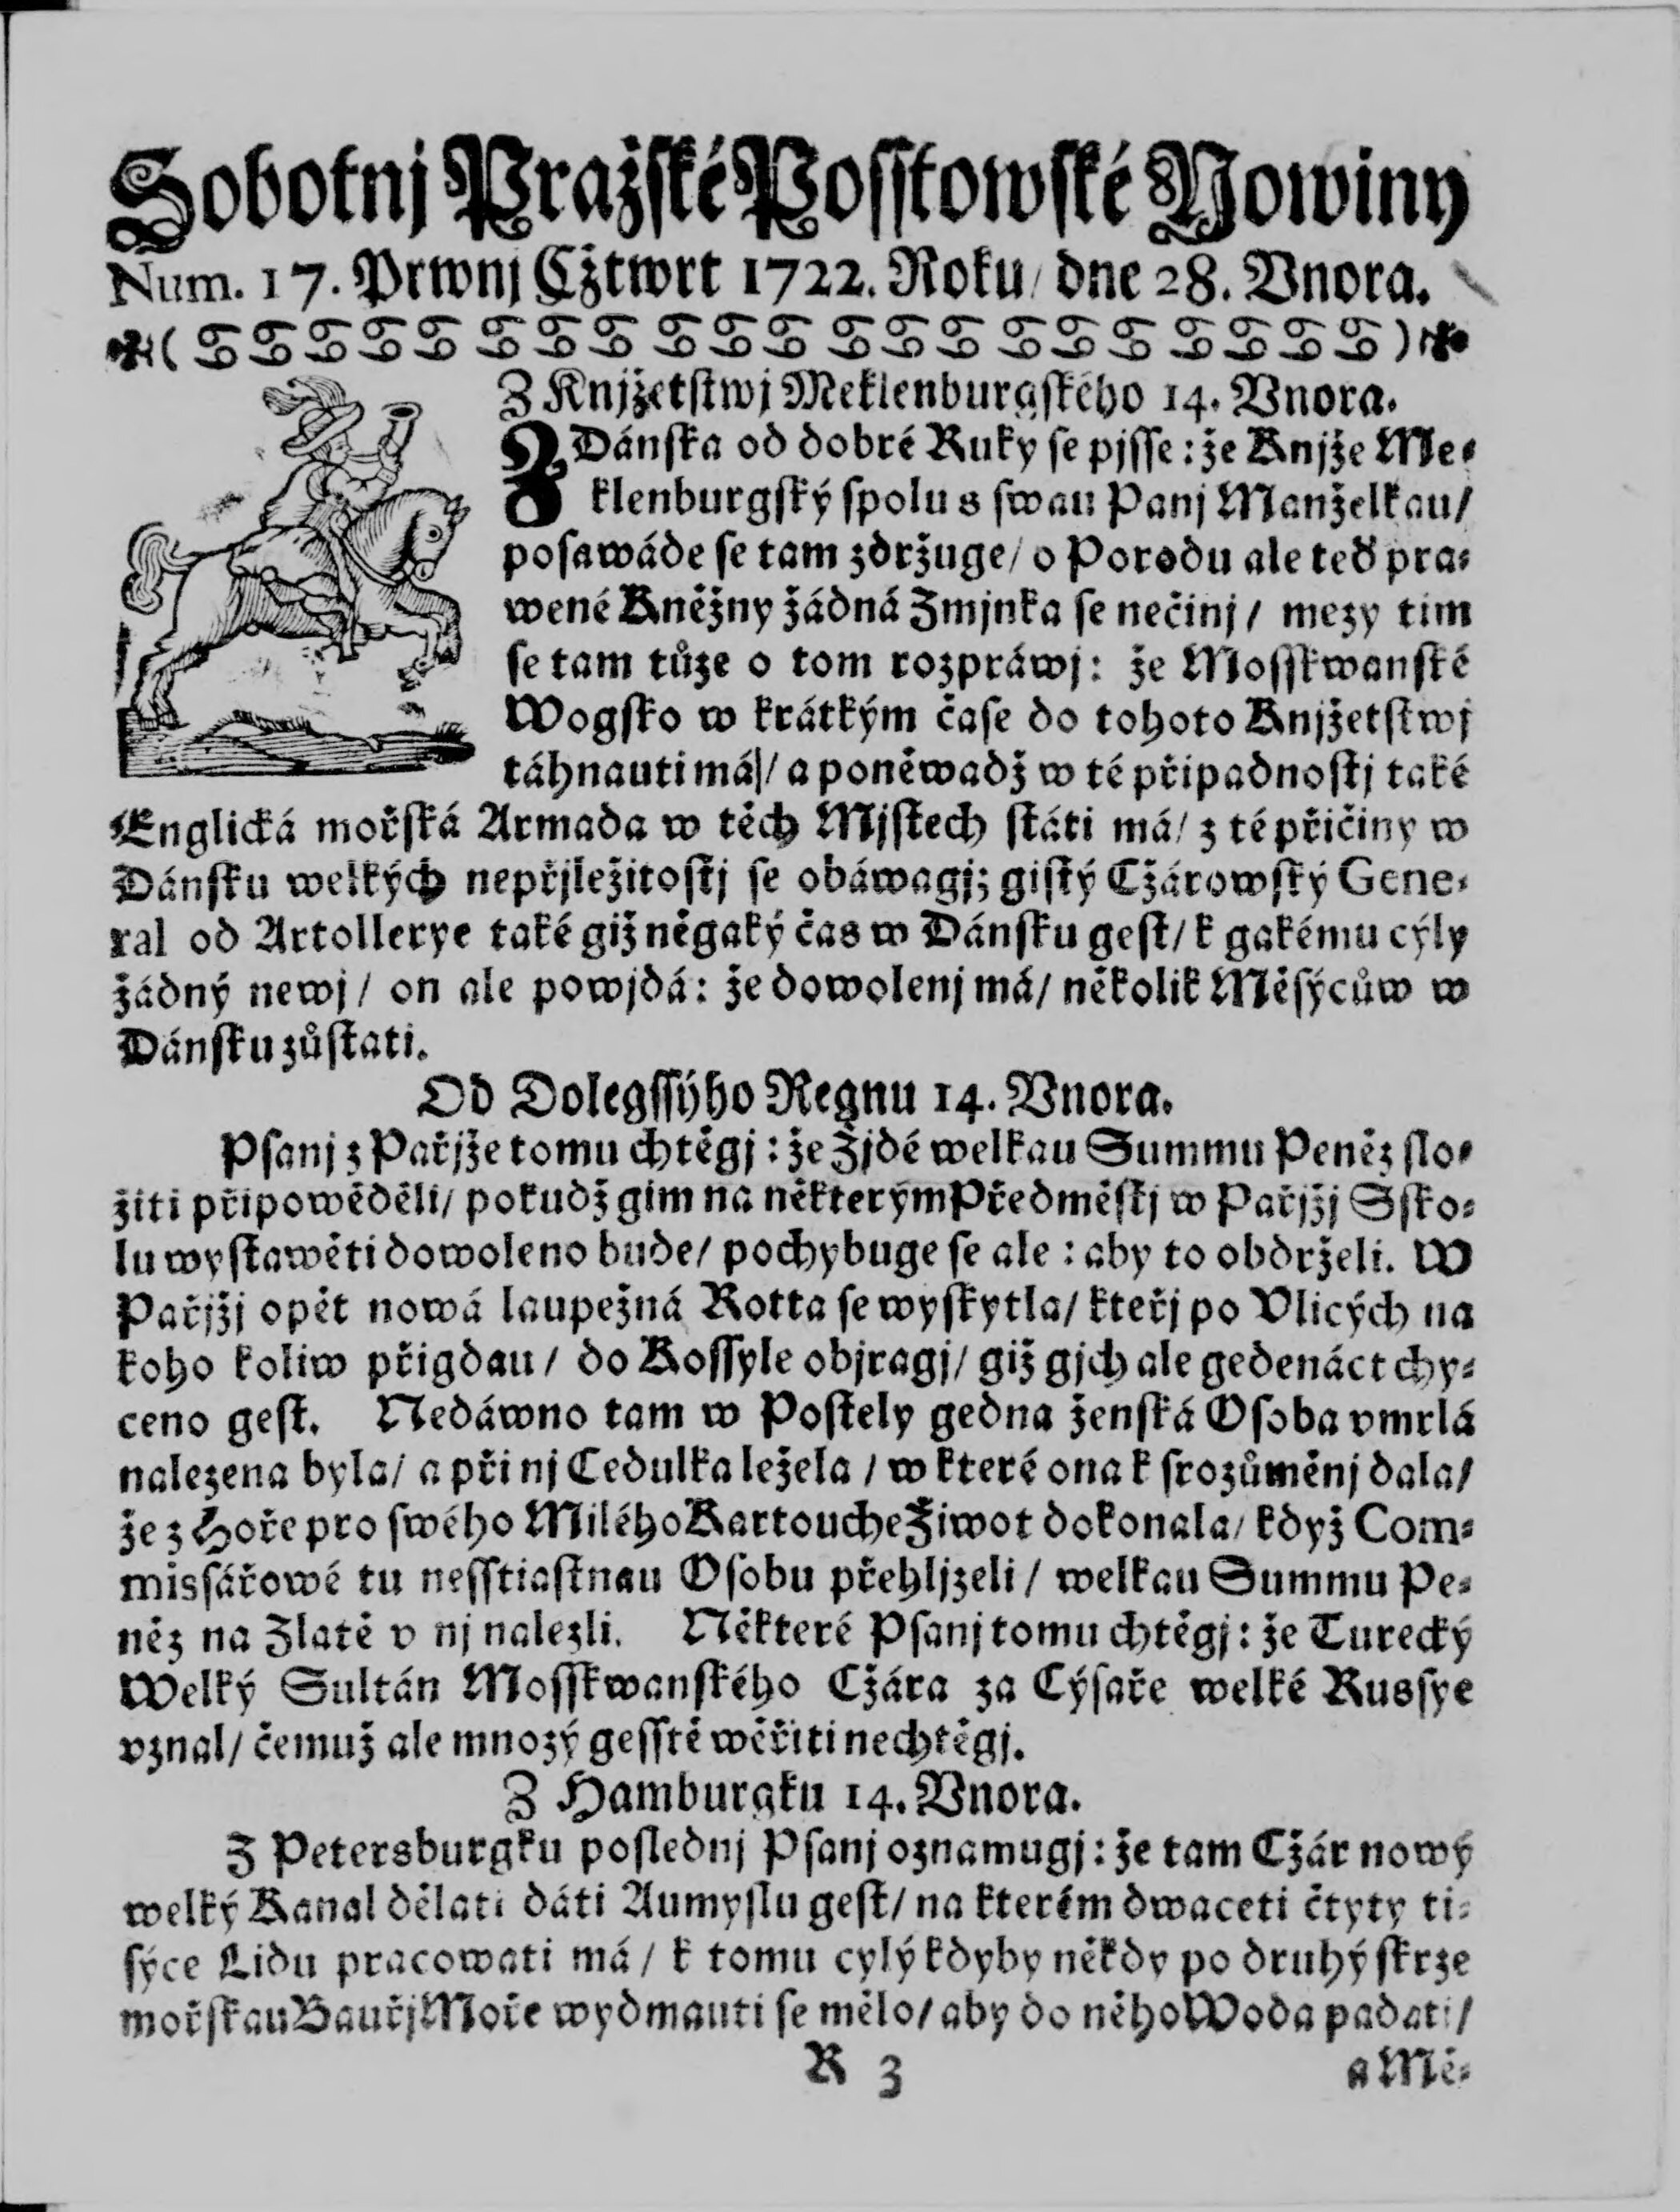 Sobotnj Pražſké Poſſtowſké Nowiny
Num. 17. Prwnj Cžtwrt 1722. Roku/ dne 28. Vnora.
Z Knjžetſtwj Meklenburgſkého 14. Vnora.
Z Dánſka od dobré Ruky ſe pjſſe: že Knjže Me-
klenburgſký ſpolu s ſwau Panj Manželkau/
poſawáde ſe tam zdržuge/ o Porodu ale teď pra-
wené Kněžny žádná Zmjnka ſe nečinj/ mezy tim
ſe tam tůze o tom rozpráwj: že Moſſkwanſké
Wogſko w krátkým čaſe do tohoto Knjžetſtwj
táhnauti má/ a poněwadž w té připadnoſtj také
Englická mořſká Armada w těch Mjſtech ſtáti má/ z té přičiny w
Dánſku welkých nepřjležitoſtj ſe obáwagj; giſtý Cžárowſký Gene-
ral od Artollerye také giž něgaký čas w Dánſku geſt/ k gakému cýly
žádný newj/ on ale powjdá: že dowolenj má/ několik Měſýcůw w
Dánſku zůſtati.
Od Dolegſſýho Regnu 14. Vnora.
Pſanj z Pařjže tomu chtěgj: že Židé welkau Summu Peněz ſlo-
žiti připowěděli/ pokudž gim na některým Předměſtj w Pařjžj Sſko-
lu wyſtawěti dowoleno bude/ pochybuge ſe ale: aby to obdrželi. W
Pařjžj opět nowá laupežná Rotta ſe wyſkytla/ kteřj po Vlicých na
koho koliw přigdau/ do Koſſyle objragj/ giž gjch ale gedenáct chy-
ceno geſt. Nedáwno tam w Poſtely gedna ženſká Oſoba vmrlá
nalezena byla/ a při nj Cedulka ležela/ w které ona k ſrozůměnj dala/
že z Hoře pro ſwého Milého Kartouche Žiwot dokonala/ když Com-
miſſářowé tu neſſtiaſtnau Oſobu přehljzeli/ welkau Summu Pe-
něz na Zlatě v nj nalezli. Některé Pſanj tomu chtěgj: že Turecký
Welký Sultán Moſſkwanſkého Cžára za Cýſaře welké Rusſye
vznal/ čemuž ale mnozý geſſtě wěřiti nechtěgj.
Z Hamburgku 14. Vnora.
Z Petersburgku poſlednj Pſanj oznamugj: že tam Cžár nowý
welký Kanal dělati dáti Aumyſlu geſt/ na kterém dwaceti čtyty ti-
ſýce Lidu pracowati má/ k tomu cylý kdyby někdy po druhý ſkrze
mořſkau Bauřj Moře wydmauti ſe mělo/ aby do něho Woda padati/
K 3
a Mě-